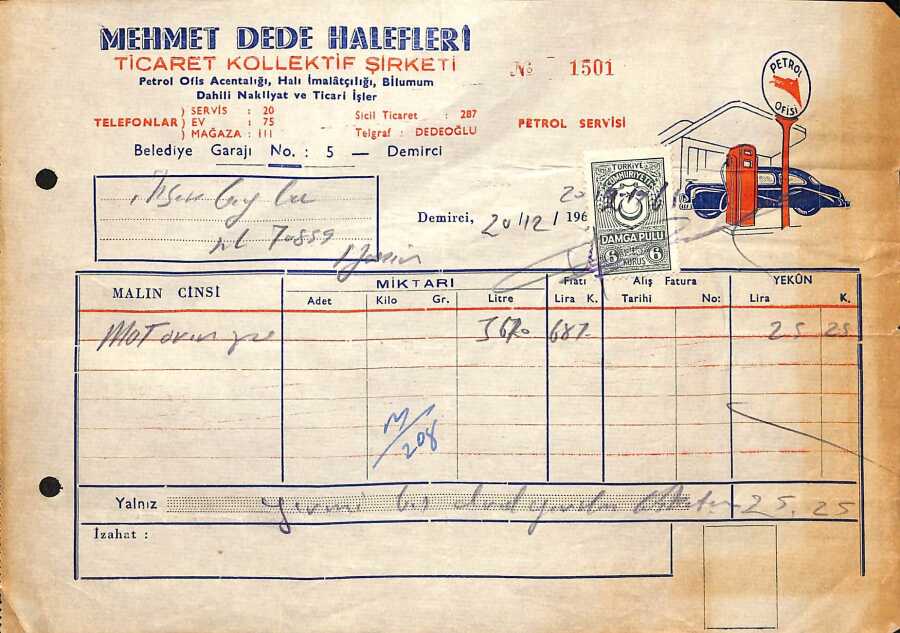 MEHMET DEDE HALEFLERİ
TİCARET KOLLEKTİF ŞİRKETİ
Petrol Ofis Acentalığı, Halı İmalâtçılığı, Bilumum
Dahili Nakliyat ve Ticari İşler
TELEFONLAR ) SERVİS : 20
) EV : 75
) MAĞAZA : 111
Sicil Ticaret : 287
Telgraf : DEDEOĞLU
Belediye Garajı No. : 5 — Demirci
No 1501
PETROL SERVİSİ
PETROL
OFİSİ
70889
Demirci, 20/12/196
TÜRKİYE
CUMHURİYETİ
DAMGA PULU
6 KURUŞ 6
MALIN CİNSİ
MİKTARI
Adet
Kilo Gr.
Litre
Fiatı
Lira K.
Alış Fatura
Tarihi No:
YEKÛN
Lira K.
Motorin
25 25
M/208
Yalnız 25.25
İzahat :